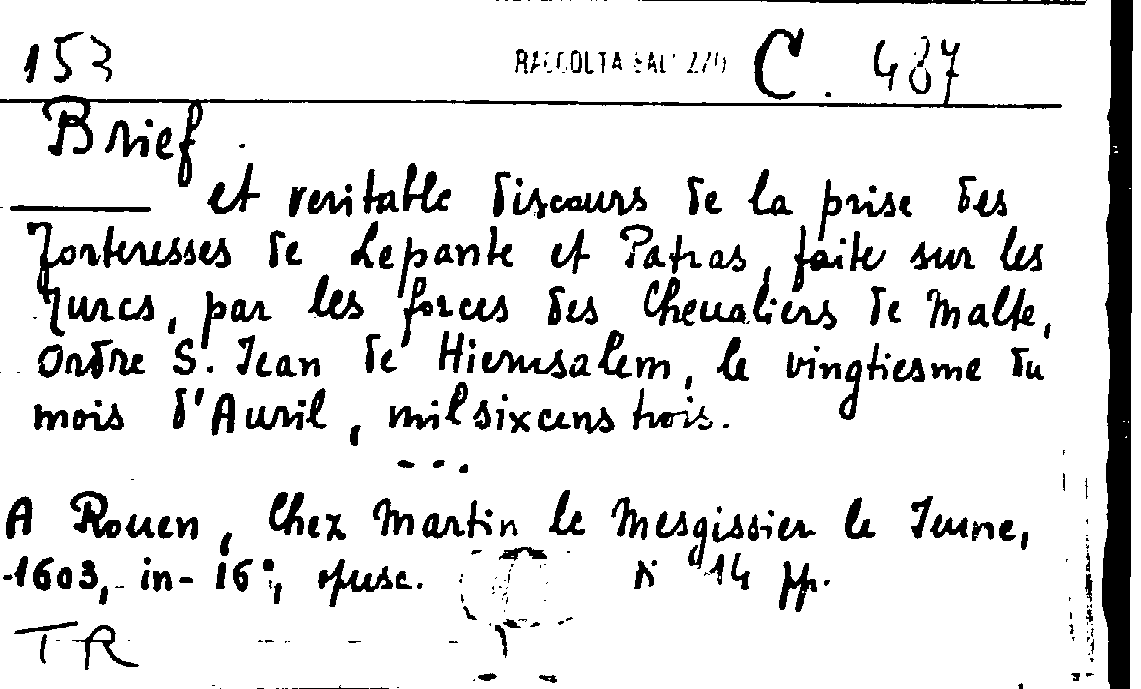 153 RACCOLTA C. 487
Brief
et veritable discours de la prise des
Forteresses de Lepante et Patras, faite sur les
Turcs, par les forces des Chevaliers de Malte,
Ordre S. Jean de Hierusalem, le vingtiesme du
mois d'Auril, mil sixcens trois.
---
A Rouen, Chez Martin le Mesgissier le Jeune,
1603, in-16°, opusc. 14 pp.
TR